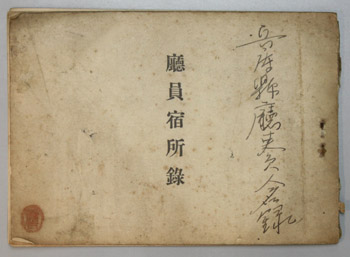 兵庫縣廳吏員人名錄
廳員宿所錄